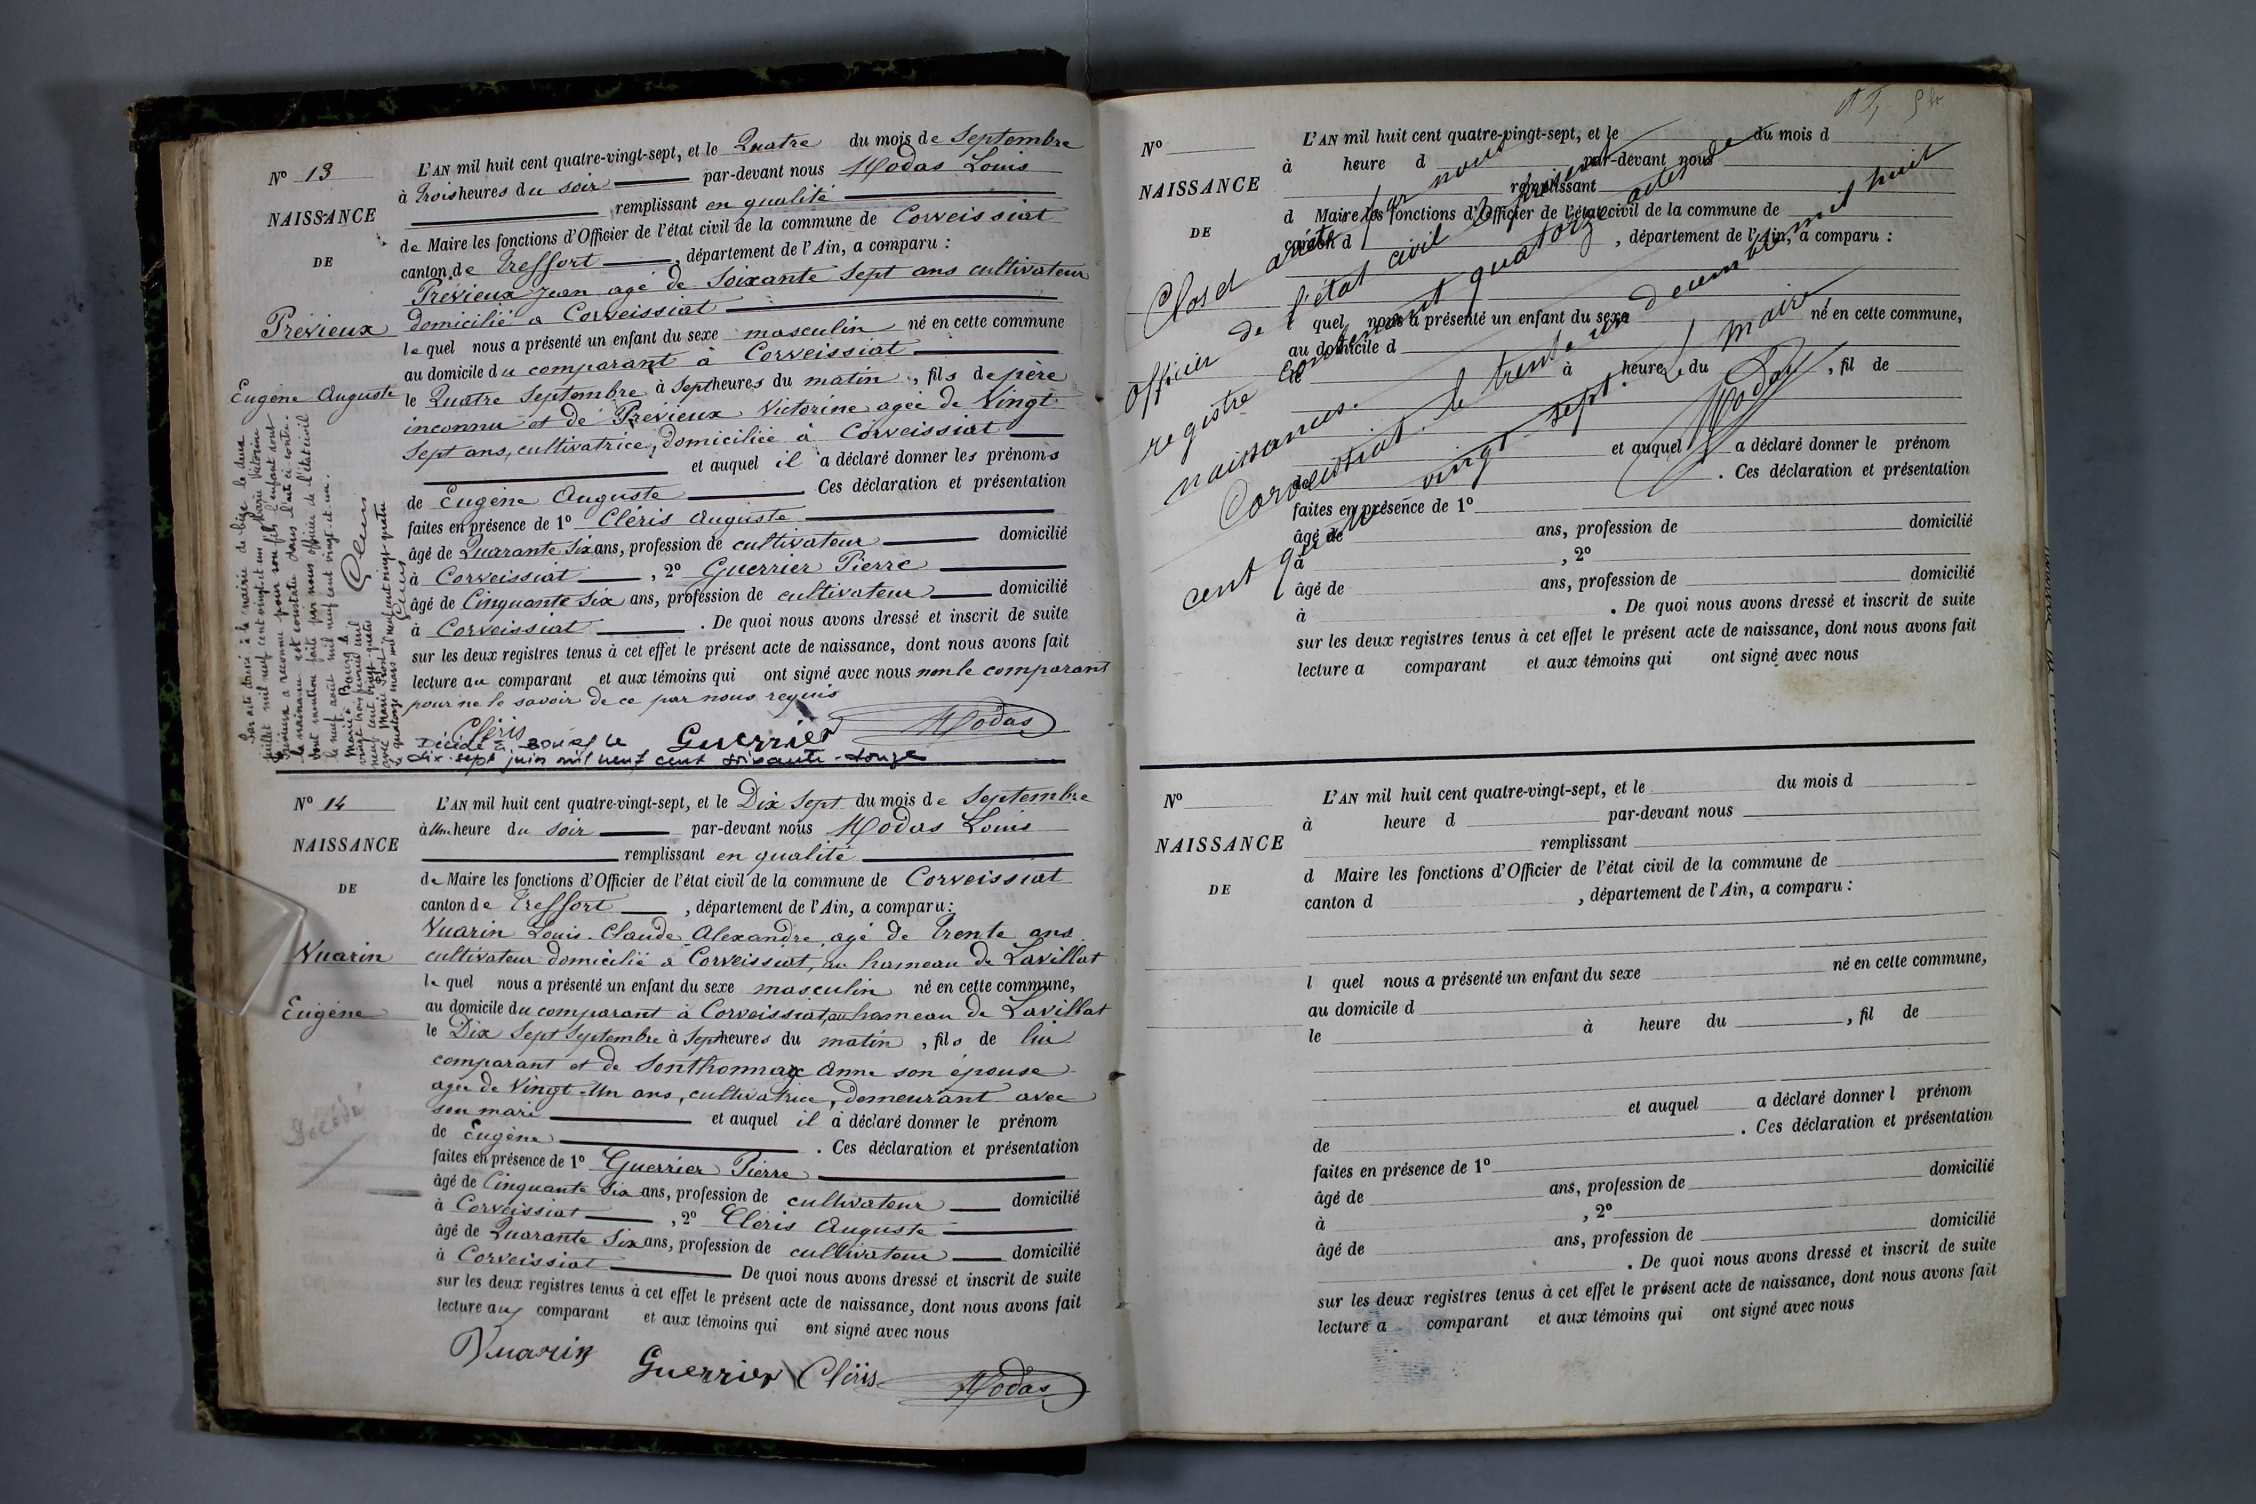 N° 13
NAISSANCE
DE
Prévieux
Eugène Auguste
L'AN mil huit cent quatre-vingt-sept, et le Quatre du mois de Septembre
à trois heures du soir par-devant nous Modas Louis
remplissant en qualité
de Maire les fonctions d'Officier de l'état civil de la commune de Corveissiat
canton de Treffort, département de l'Ain, a comparu :
Prévieux Jean agé de Soixante Sept ans cultivateur
domicilié a Corveissiat
lequel nous a présenté un enfant du sexe masculin né en cette commune
au domicile du comparant à Corveissiat
le Quatre Septembre à Sept heures du matin, fils de père
inconnu et de Prévieux Victorine agée de Vingt
Sept ans, cultivatrice, domiciliée à Corveissiat
et auquel il a déclaré donner les prénoms
de Eugène Auguste Ces déclaration et présentation
faites en présence de 1° Cléris Auguste
âgé de Quarante Six ans, profession de cultivateur domicilié
à Corveissiat, 2° Guerrier Pierre
âgé de Cinquante Six ans, profession de cultivateur domicilié
à Corveissiat. De quoi nous avons dressé et inscrit de suite
sur les deux registres tenus à cet effet le présent acte de naissance, dont nous avons fait
lecture au comparant et aux témoins qui ont signé avec nous non le comparant
pour ne le savoir de ce par nous requis
Cléris Guerrier Modas
Décédé à Bourg le
dix-sept juin mil neuf cent soixante-douze
Par acte dressé à la mairie de le deux
juillet mil neuf cent vingt et un Marie Victorine
Prévieux a reconnu pour son fils l'enfant dont
la naissance est constatée dans l'acte ci contre.
Dont mention faite par nous officier de l'état civil
le neuf août mil neuf cent vingt et un.
Marié à Bourg le
vingt trois janvier mil
neuf cent vingt quatre
avec Marie
le quatorze mars mil neuf cent vingt quatre
N° 14
NAISSANCE
DE
Vuarin
Eugène
Décédé
L'AN mil huit cent quatre-vingt-sept, et le Dix Sept du mois de Septembre
à Une heure du soir par-devant nous Modas Louis
remplissant en qualité
de Maire les fonctions d'Officier de l'état civil de la commune de Corveissiat
canton de Treffort, département de l'Ain, a comparu :
Vuarin Louis Claude Alexandre agé de Trente ans
cultivateur domicilié a Corveissiat, au hameau de Lavillat
lequel nous a présenté un enfant du sexe masculin né en cette commune,
au domicile du comparant à Corveissiat, au hameau de Lavillat
le Dix Sept Septembre à Sept heures du matin, fils de lui
comparant et de Sonthonnax Anne son épouse
agée de Vingt Un ans, cultivatrice, demeurant avec
son mari et auquel il a déclaré donner le prénom
de Eugène. Ces déclaration et présentation
faites en présence de 1° Guerrier Pierre
âgé de Cinquante Six ans, profession de cultivateur domicilié
à Corveissiat, 2° Cléris Auguste
âgé de Quarante Six ans, profession de cultivateur domicilié
à Corveissiat De quoi nous avons dressé et inscrit de suite
sur les deux registres tenus à cet effet le présent acte de naissance, dont nous avons fait
lecture au comparant et aux témoins qui ont signé avec nous
Vuarin Guerrier Cléris Modas
N°
NAISSANCE
DE
L'AN mil huit cent quatre-vingt-sept, et le du mois d
à heure d par-devant nous
remplissant
d Maire les fonctions d'Officier de l'état civil de la commune de
canton d, département de l'Ain, a comparu :
l quel nous a présenté un enfant du sexe né en cette commune,
au domicile d
le à heure du, fil de
et auquel a déclaré donner le prénom
de. Ces déclaration et présentation
faites en présence de 1°
âgé de ans, profession de domicilié
à, 2°
âgé de ans, profession de domicilié
à. De quoi nous avons dressé et inscrit de suite
sur les deux registres tenus à cet effet le présent acte de naissance, dont nous avons fait
lecture a comparant et aux témoins qui ont signé avec nous
Clos et arrêté par nous
officier de l'état civil le présent
registre contenant quatorze actes de
naissances.
Corveissiat le trente un décembre mil huit
cent quatre vingt sept. Le maire
Modas
N°
NAISSANCE
DE
L'AN mil huit cent quatre-vingt-sept, et le du mois d
à heure d par-devant nous
remplissant
d Maire les fonctions d'Officier de l'état civil de la commune de
canton d, département de l'Ain, a comparu :
l quel nous a présenté un enfant du sexe né en cette commune,
au domicile d
le à heure du, fil de
et auquel a déclaré donner l prénom
de. Ces déclaration et présentation
faites en présence de 1°
âgé de ans, profession de domicilié
à, 2°
âgé de ans, profession de domicilié
. De quoi nous avons dressé et inscrit de suite
sur les deux registres tenus à cet effet le présent acte de naissance, dont nous avons fait
lecture a comparant et aux témoins qui ont signé avec nous